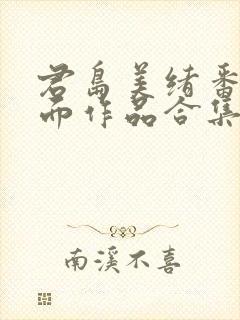 君岛美绪番
而作品合集
南溪不喜